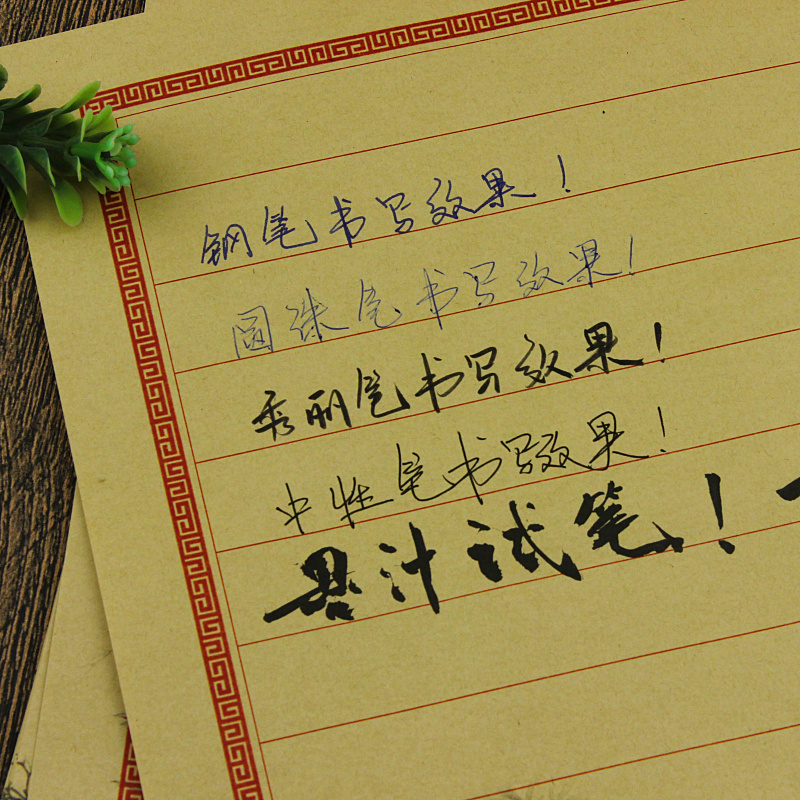 钢笔书写效果！
圆珠笔书写效果！
秀丽笔书写效果！
中性笔书写效果！
墨汁试笔！